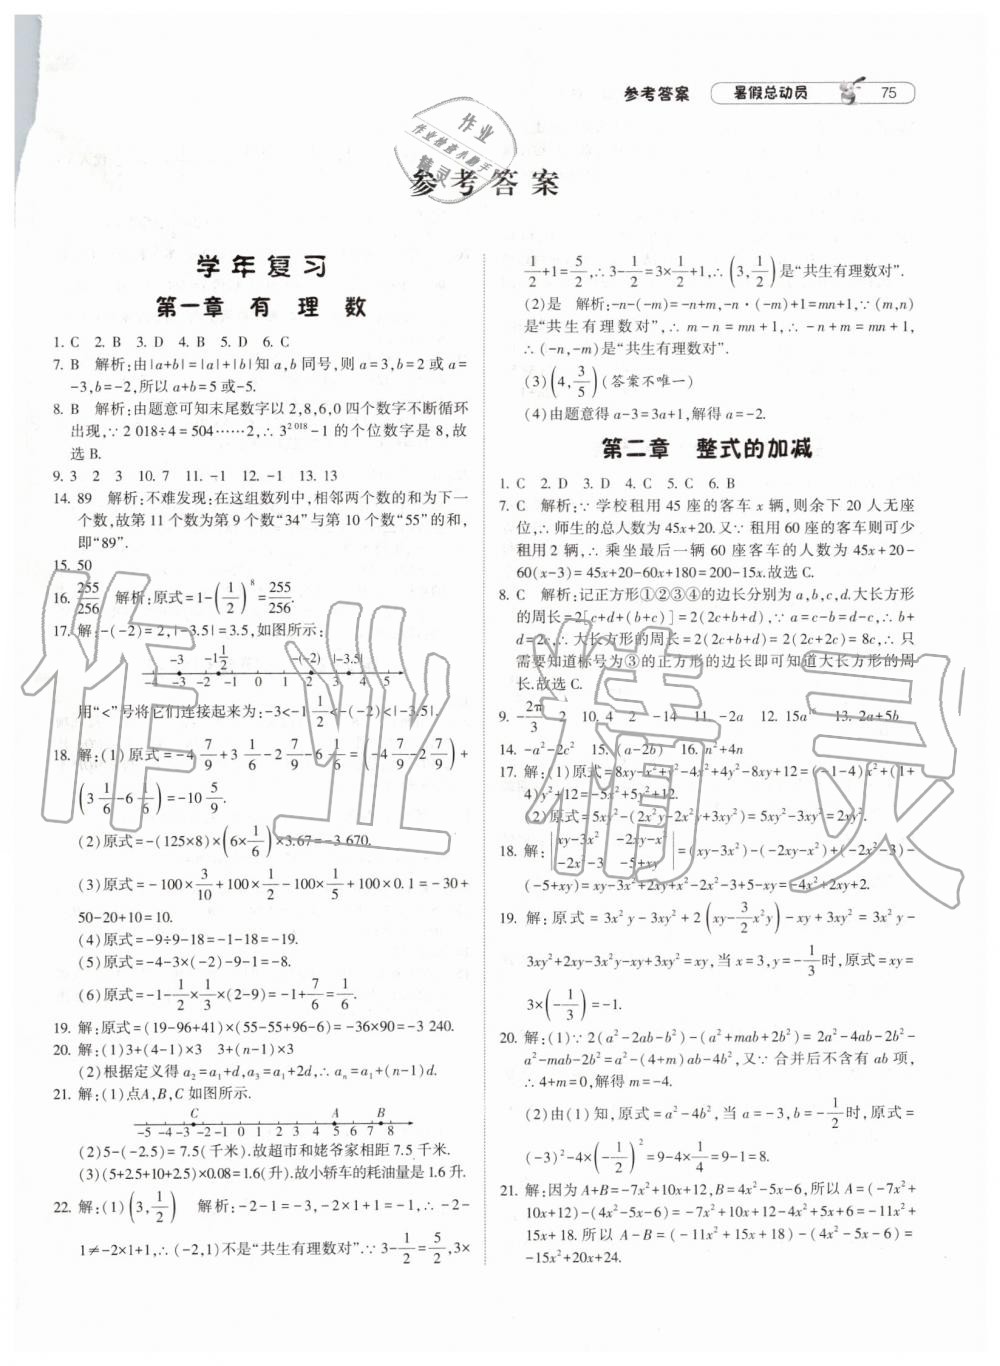 参考答案 暑假总动员 75
作业
作业检查小助手
精灵
参考答案
学年复习
第一章 有 理 数
1. C 2. B 3. D 4. B 5. D 6. C
7. B 解析:由|a+b|=|a|+|b|知a,b同号,则a=3,b=2或a=
-3,b=-2,所以a+b=5或-5.
8. B 解析:由题意可知末尾数字以2,8,6,0四个数字不断循环
出现,∵2 018÷4=504……2,∴3^{2 018}-1的个位数字是8,故
选B.
9. 3 2 3 10. 7 11. -1 12. -1 13. 13
14. 89 解析:不难发现:在这组数列中,相邻两个数的和为下一
个数,故第11个数为第9个数“34”与第10个数“55”的和,
即“89”.
15. 50
16. 255/256 解析:原式=1-(1/2)^8=255/256.
17. 解:-(-2)=2,|-3.5|=3.5,如图所示:
-3 -1 1/2 -(-2) |-3.5|
-4 -3 -2 -1 0 1 2 3 4 5
用“<”号将它们连接起来为:-3<-1 1/2<-(-2)<|-3.5|.
18. 解:(1)原式=-4 7/9+3 1/6-2 7/9-6 1/6=(-4 7/9-2 7/9)+
(3 1/6-6 1/6)=-10 5/9.
(2)原式=-(125×8)×(6×1/6)×3.67=-3 670.
(3)原式=-100×3/10+100×1/2-100×1/5+100×0.1=-30+
50-20+10=10.
(4)原式=-9÷9-18=-1-18=-19.
(5)原式=-4-3×(-2)-9-1=-8.
(6)原式=-1-1/2×1/3×(2-9)=-1+7/6=1/6.
19. 解:原式=(19-96+41)×(55-55+96-6)=-36×90=-3 240.
20. 解:(1)3+(4-1)×3 3+(n-1)×3
(2)根据定义得a₂=a₁+d,a₃=a₁+2d,∴aₙ=a₁+(n-1)d.
21. 解:(1)点A,B,C如图所示.
C A B
-5 -4 -3 -2 -1 0 1 2 3 4 5 6 7 8
(2)5-(-2.5)=7.5(千米).故超市和姥爷家相距7.5千米.
(3)(5+2.5+10+2.5)×0.08=1.6(升).故小轿车的耗油量是1.6升.
22. 解:(1)(3,1/2) 解析:-2-1=-3,-2×1+1=-1,∴-2-
1≠-2×1+1,∴(-2,1)不是“共生有理数对”.∵3-1/2=5/2,3×
1/2+1=5/2,∴3-1/2=3×1/2+1,∴(3,1/2)是“共生有理数对”.
(2)是 解析:-n-(-m)=-n+m,-n·(-m)+1=mn+1,∵(m,n)
是“共生有理数对”,∴m-n=mn+1,∴-n+m=mn+1,
∴(-n,-m)是“共生有理数对”.
(3)(4,3/5)(答案不唯一)
(4)由题意得a-3=3a+1,解得a=-2.
第二章 整式的加减
1. C 2. D 3. D 4. C 5. C 6. B
7. C 解析:∵学校租用45座的客车x辆,则余下20人无座
位,∴师生的总人数为45x+20.又∵租用60座的客车则可少
租用2辆,∴乘坐最后一辆60座客车的人数为45x+20-
60(x-3)=45x+20-60x+180=200-15x.故选C.
8. C 解析:记正方形①②③④的边长分别为a,b,c,d.大长方形
的周长=2[c+d+(b+c)]=2(2c+b+d),∵a=c-b=d-c,∴b+
d=2c,∴大长方形的周长=2(2c+b+d)=2(2c+2c)=8c,∴只
需要知道标号为③的正方形的边长即可知道大长方形的周
长.故选C.
9. -2π/3 2 10. 4 2 -14 11. -2a 12. 15a¹⁶ 13. 2a+5b
14. -a²-2c² 15. (a-2b) 16. n²+4n
17. 解:(1)原式=8xy-x²+y²-4x²+4y²-8xy+12=(-1-4)x²+(1+
4)y²+12=-5x²+5y²+12.
(2)原式=5xy²-(2x²y-2x²y+3xy²)=5xy²-3xy²=2xy².
18. 解:|xy-3x² -2xy-x²|
|-2x²-3 -5+xy|=(xy-3x²)-(-2xy-x²)+(-2x²-3)-
(-5+xy)=xy-3x²+2xy+x²-2x²-3+5-xy=-4x²+2xy+2.
19. 解:原式=3x²y-3xy²+2(xy-3/2x²y)-xy+3xy²=3x²y-
3xy²+2xy-3x²y-xy+3xy²=xy,当x=3,y=-1/3时,原式=xy=
3×(-1/3)=-1.
20. 解:(1)∵2(a²-2ab-b²)-(a²+mab+2b²)=2a²-4ab-2b²-
a²-mab-2b²=a²-(4+m)ab-4b²,又∵合并后不含有ab项,
∴4+m=0,解得m=-4.
(2)由(1)知,原式=a²-4b²,当a=-3,b=-1/2时,原式=
(-3)²-4×(-1/2)²=9-4×1/4=9-1=8.
21. 解:因为A+B=-7x²+10x+12,B=4x²-5x-6,所以A=(-7x²+
10x+12)-(4x²-5x-6)=-7x²+10x+12-4x²+5x+6=-11x²+
15x+18.所以A-B=(-11x²+15x+18)-(4x²-5x-6)=
-15x²+20x+24.
作业精灵